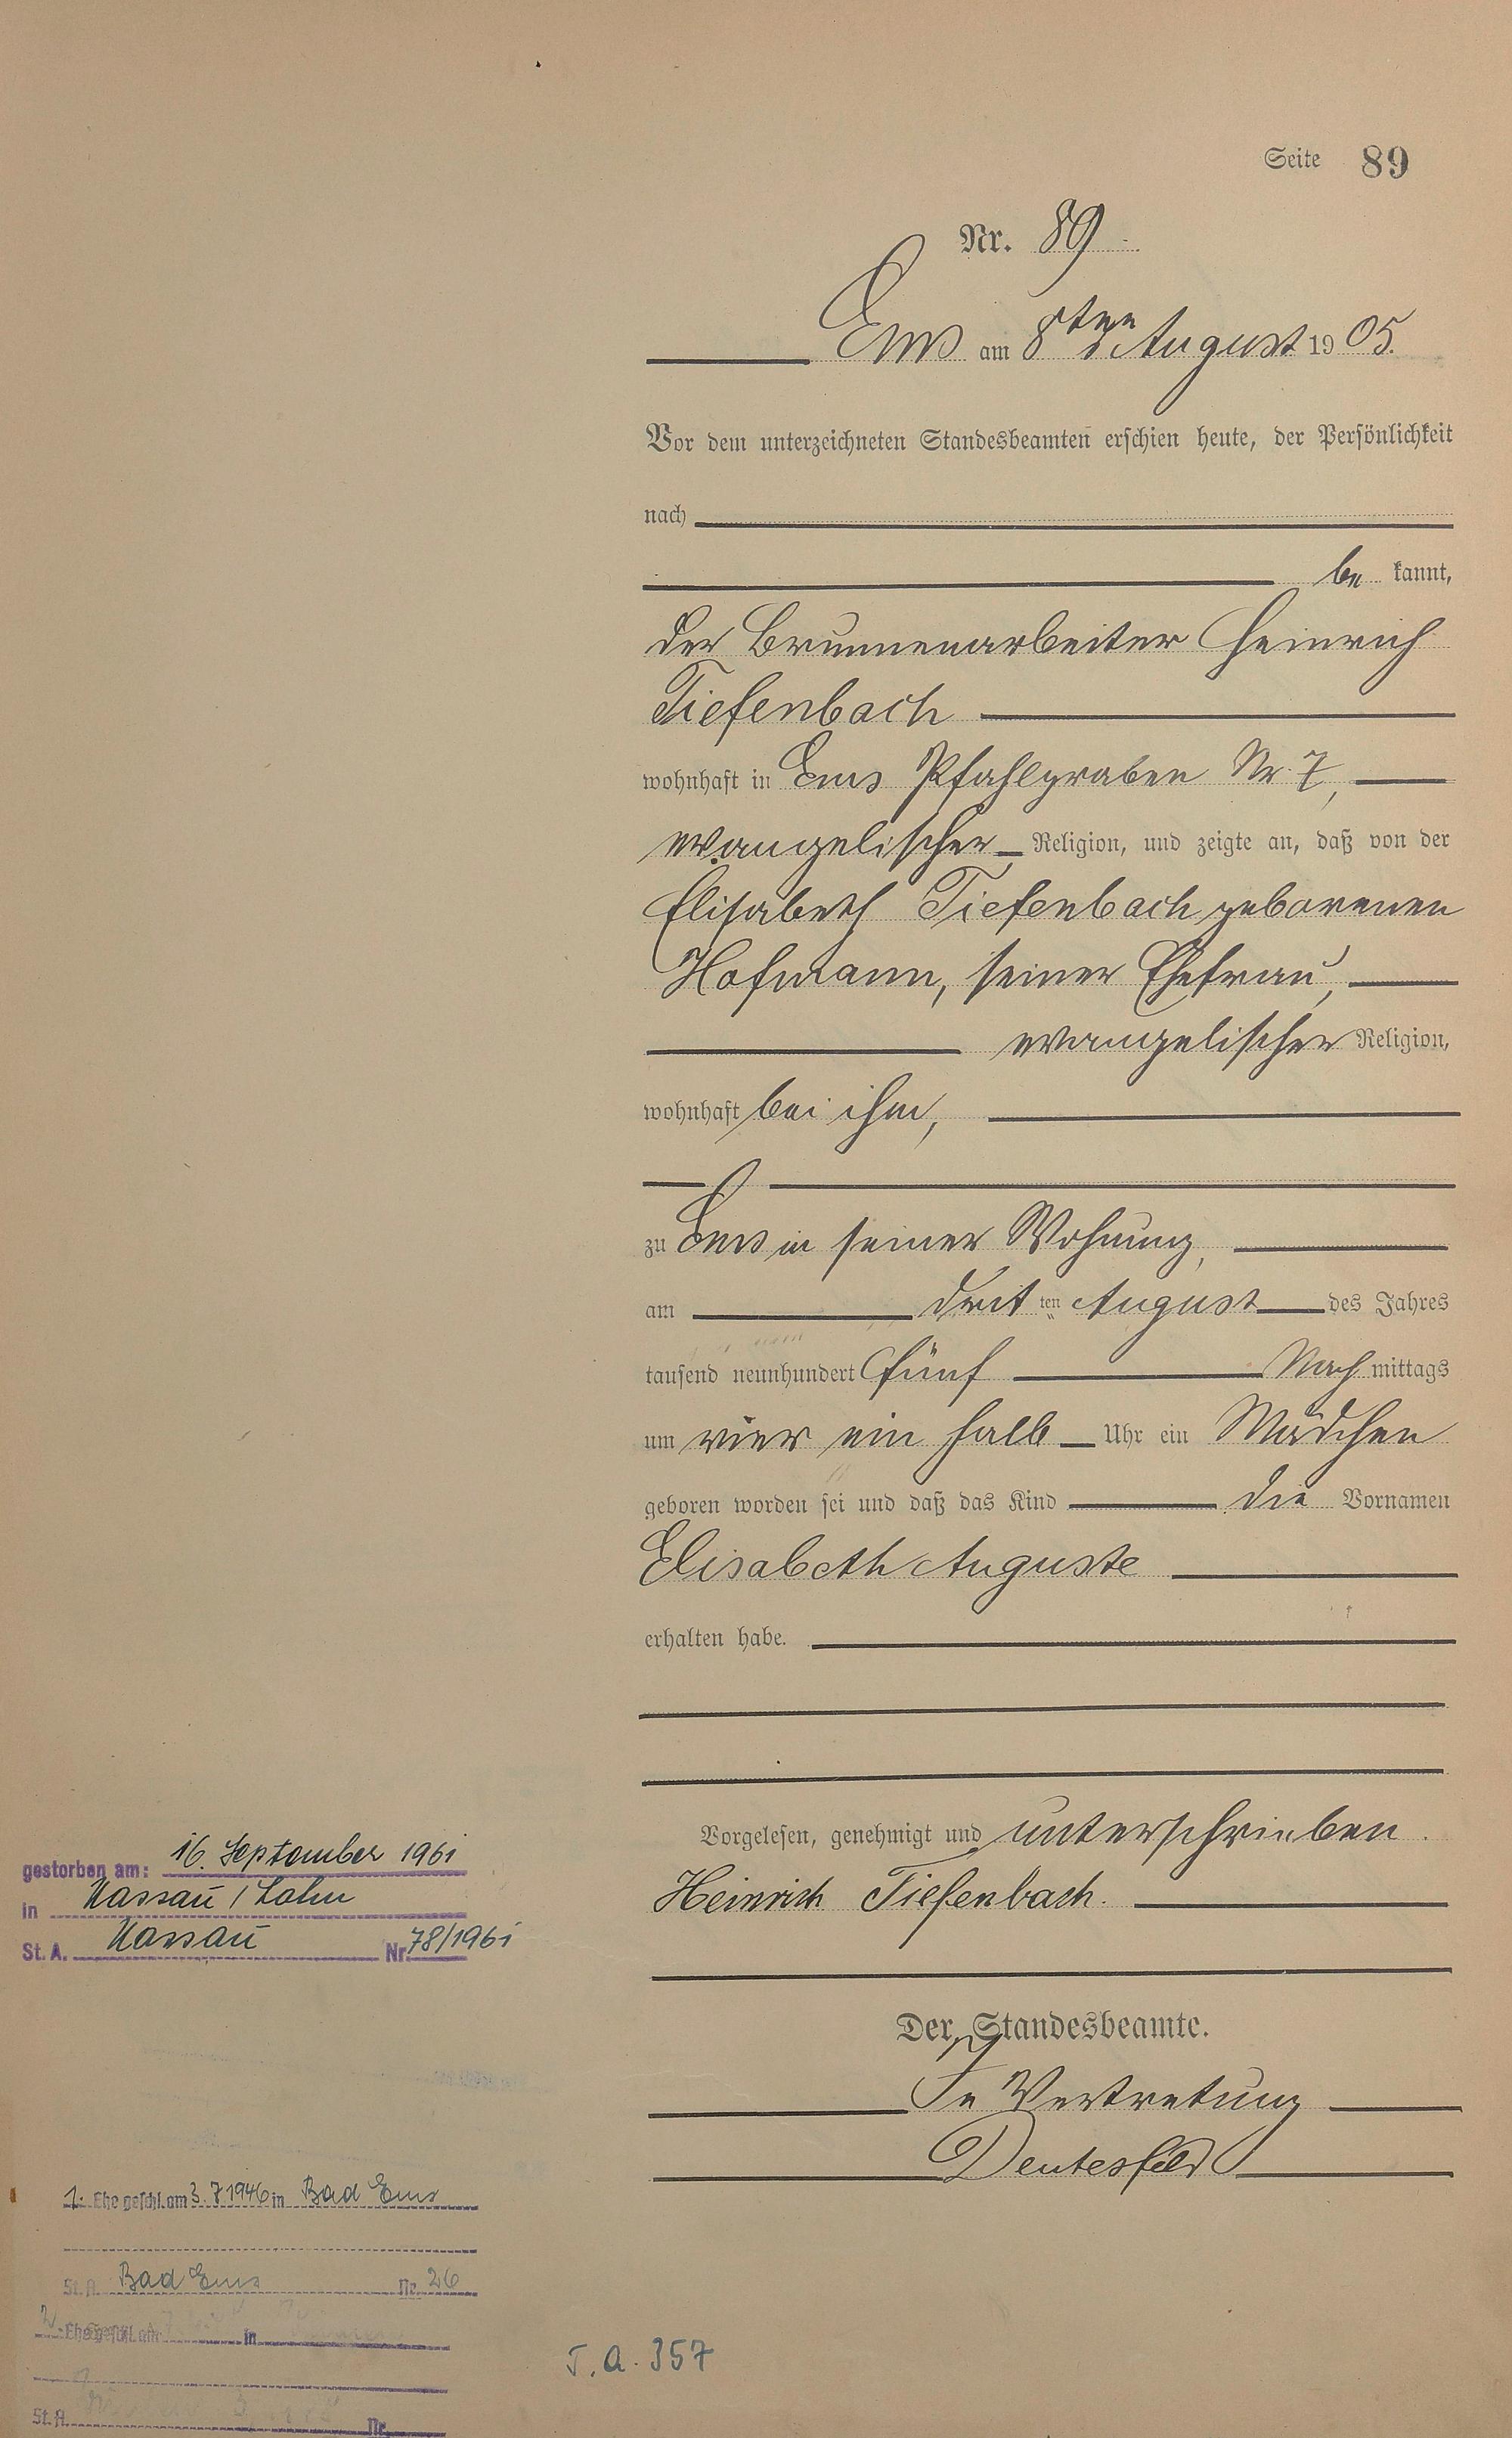 Seite 89
Nr. 89.
Ems am 8ten August 1905.
Vor dem unterzeichneten Standesbeamten erschien heute, der Persönlichkeit
nach
be kannt,
der Brunnenarbeiter Heinrich
Tiefenbach
wohnhaft in Ems Pfahlgraben Nr. 7,
evangelischer Religion, und zeigte an, daß von der
Elisabeth Tiefenbach geborenen
Hofmann, seiner Ehefrau,
evangelischer Religion,
wohnhaft bei ihm,
zu Ems in seiner Wohnung,
am dritten August des Jahres
tausend neunhundert fünf Nach mittags
um vier ein halb Uhr ein Mädchen
geboren worden sei und daß das Kind die Vornamen
Elisabeth Auguste
erhalten habe.
Vorgelesen, genehmigt und unterschrieben.
Heinrich Tiefenbach.
Der Standesbeamte.
In Vertretung
Deutesfeld
gestorben am: 16. September 1961
in Nassau / Lahn
St. A. Nassau Nr. 78/1961
1. Ehe geschl. am 3.7.1946 in Bad Ems
St. A. Bad Ems Nr. 26
2. Ehe geschl. am in
St. A. Nr.
T.a. 357